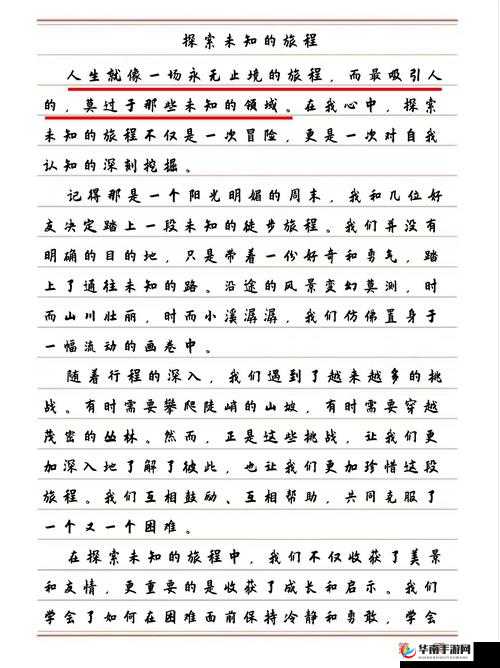 探索未知的旅程
人生就像一场永无止境的旅程，而最吸引人
的，莫过于那些未知的领域。在我心中，探索
未知的旅程不仅是一次冒险，更是一次对自我
认知的深刻挖掘。
记得那是一个阳光明媚的周末，我和几位好
友决定踏上一段未知的徒步旅程。我们并没有
明确的目的地，只是带着一份好奇和勇气，踏
上了通往未知的路。沿途的风景变幻莫测，时
而山川壮丽，时而小溪潺潺，我们仿佛置身于
一幅流动的画卷中。
随着行程的深入，我们遇到了越来越多的挑
战。有时需要攀爬陡峭的山坡，有时需要穿越
茂密的丛林。然而，正是这些挑战，让我们更
加深入地了解了彼此，也让我们更加珍惜这段
旅程。我们互相鼓励、互相帮助，共同克服了
一个又一个困难。
在探索未知的旅程中，我们不仅收获了美景
和友情，更重要的是收获了成长和启示。我们
学会了如何在困难面前保持冷静和勇敢，学会
华南手游网